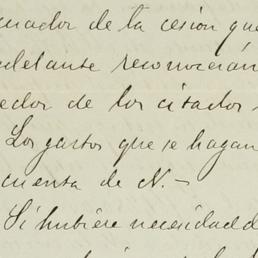 cuador de la cesion que
adelante reconocerán
edor de los citados
Los gastos que se hagan
cuenta de N. —
Si hubiere necesidad d